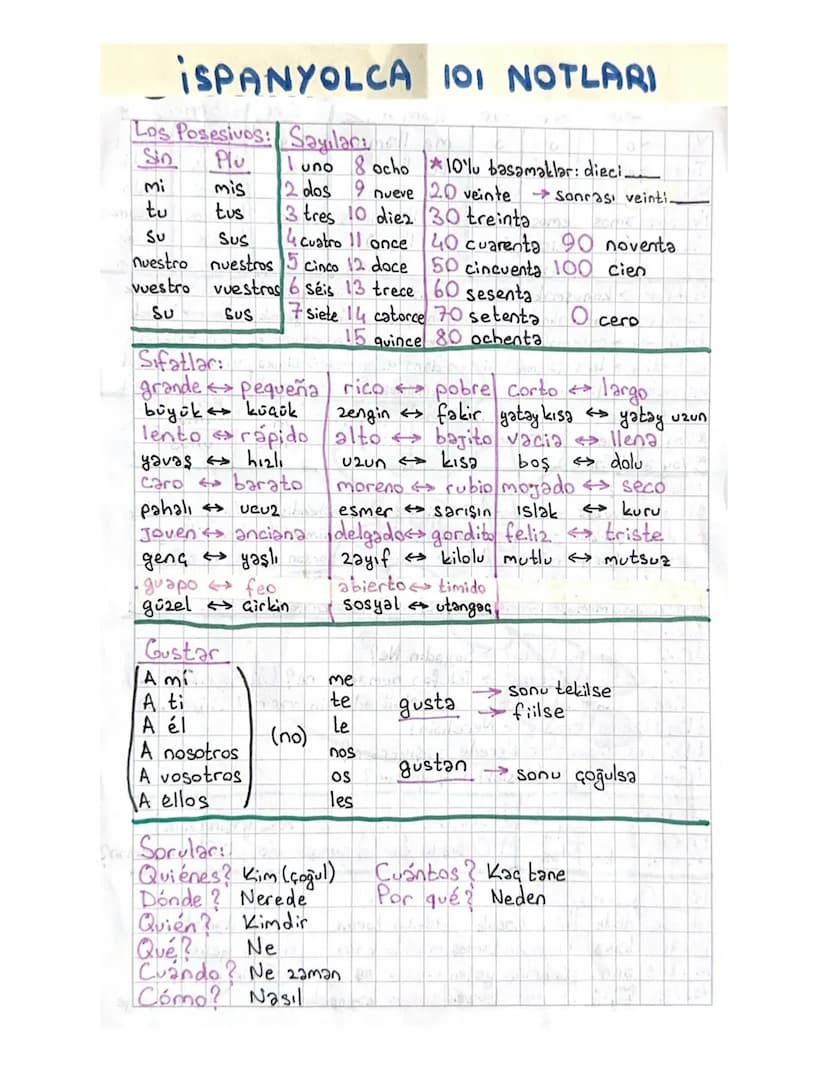 İSPANYOLCA 101 NOTLARI
Los Posesivos:
Sin Plu
mi mis
tu tus
su sus
nuestro nuestros
vuestro vuestros
su sus
Sayılar:
1 uno 8 ocho
2 dos 9 nueve
3 tres 10 diez
4 cuatro 11 once
5 cinco 12 doce
6 séis 13 trece
7 siete 14 catorce
15 quince
*10'lu basamaklar: dieci___
20 veinte → sonrası veinti___
30 treinta
40 cuarenta 90 noventa
50 cincuenta 100 cien
60 sesenta
70 setenta 0 cero
80 ochenta
Sıfatlar:
grande ↔ pequeña rico ↔ pobre corto ↔ largo
büyük ↔ küçük zengin ↔ fakir yatay kısa ↔ yatay uzun
lento ↔ rápido alto ↔ bajito vacia ↔ llena
yavaş ↔ hızlı uzun ↔ kısa boş ↔ dolu
caro ↔ barato moreno ↔ rubio mojado ↔ seco
pahalı ↔ ucuz esmer ↔ sarışın ıslak ↔ kuru
joven ↔ anciana delgado ↔ gordito feliz ↔ triste
genç ↔ yaşlı zayıf ↔ kilolu mutlu ↔ mutsuz
guapo ↔ feo abierto ↔ timido
güzel ↔ çirkin sosyal ↔ utangaç
Gustar
A mí me
A ti te
A él le
A nosotros nos
A vosotros os
A ellos les
(no)
gusta → sonu tekilse
→ fiilse
gustan → sonu çoğulsa
Sorular:
Quiénes? Kim (çoğul) Cuántos? Kaç tane
Dónde? Nerede Por qué? Neden
Quién? Kimdir
Qué? Ne
Cuándo? Ne zaman
Cómo? Nasıl